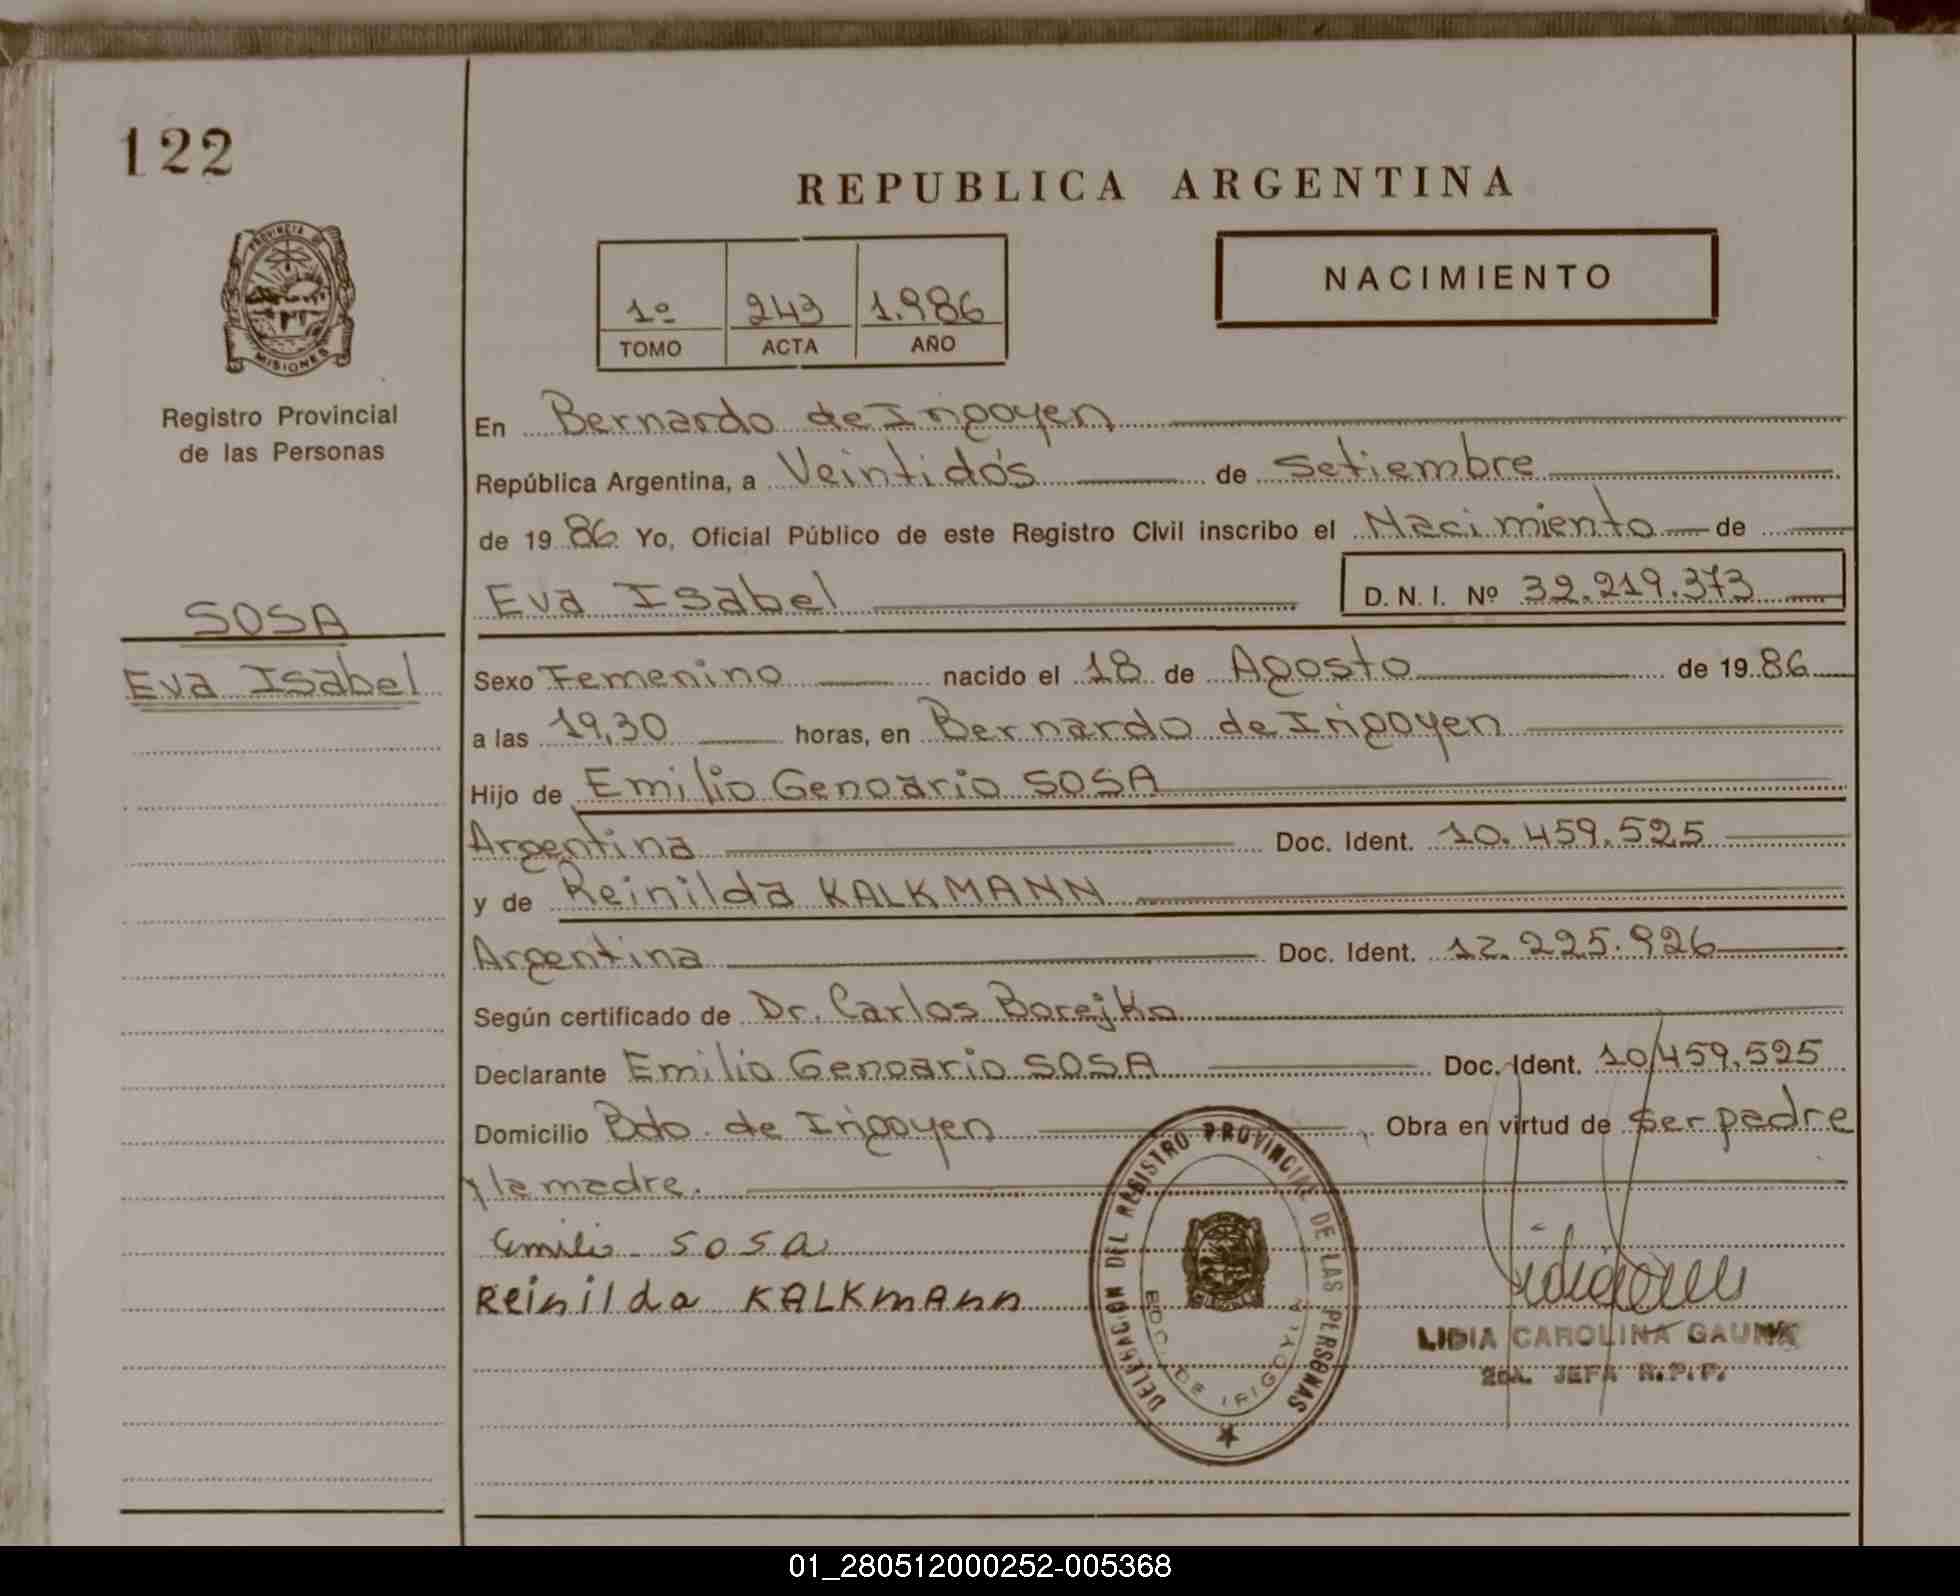 122
REPUBLICA ARGENTINA
PROVINCIA DE
MISIONES
Registro Provincial
de las Personas
1º 243 1.986
TOMO ACTA AÑO
NACIMIENTO
En Bernardo de Irigoyen
República Argentina, a Veintidós de Setiembre
de 19 86 Yo, Oficial Público de este Registro Civil inscribo el Nacimiento de
SOSA
Eva Isabel
Eva Isabel D. N. I. Nº 32.219.373
Sexo Femenino nacido el 18 de Agosto de 19 86
a las 19,30 horas, en Bernardo de Irigoyen
Hijo de Emilio Genoario SOSA
Argentina Doc. Ident. 10.459.525
y de Reinilda KALKMANN
Argentina Doc. Ident. 12.225.926
Según certificado de Dr. Carlos Borejko
Declarante Emilio Genoario SOSA Doc. Ident. 10.459.525
Domicilio Bdo. de Irigoyen, Obra en virtud de ser padre
y la madre.
Emilio SOSA
Reinilda KALKMAnn
DELEGACION DEL REGISTRO PROVINCIAL DE LAS PERSONAS
BDO. DE IRIGOYEN
LIDIA CAROLINA GAUNA
2da. JEFA R.P.P.
01_280512000252-005368